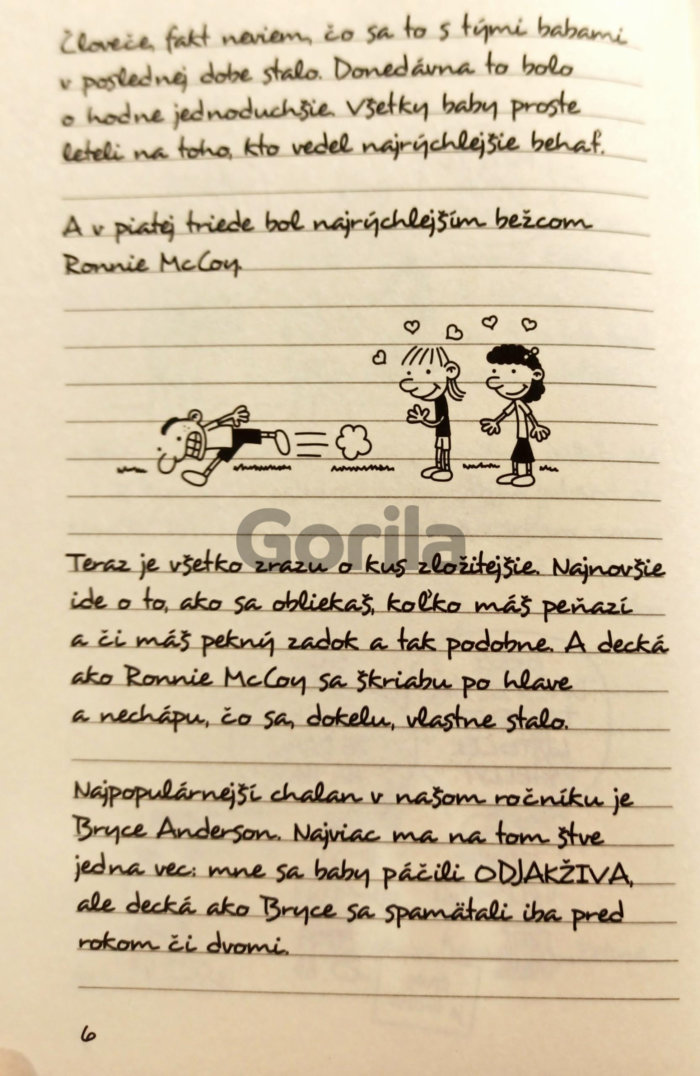 Človeče, fakt neviem, čo sa to s tými babami
v poslednej dobe stalo. Donedávna to bolo
o hodne jednoduchšie. Všetky baby proste
leteli na toho, kto vedel najrýchlejšie behať.
A v piatej triede bol najrýchlejším bežcom
Ronnie McCoy.
Gorila
Teraz je všetko zrazu o kus zložitejšie. Najnovšie
ide o to, ako sa obliekaš, koľko máš peňazí
a či máš pekný zadok a tak podobne. A decká
ako Ronnie McCoy sa škriabu po hlave
a nechápu, čo sa, dokelu, vlastne stalo.
Najpopulárnejší chalan v našom ročníku je
Bryce Anderson. Najviac ma na tom štve
jedna vec: mne sa baby páčili ODJAKŽIVA,
ale decká ako Bryce sa spamätali iba pred
rokom či dvomi.
6